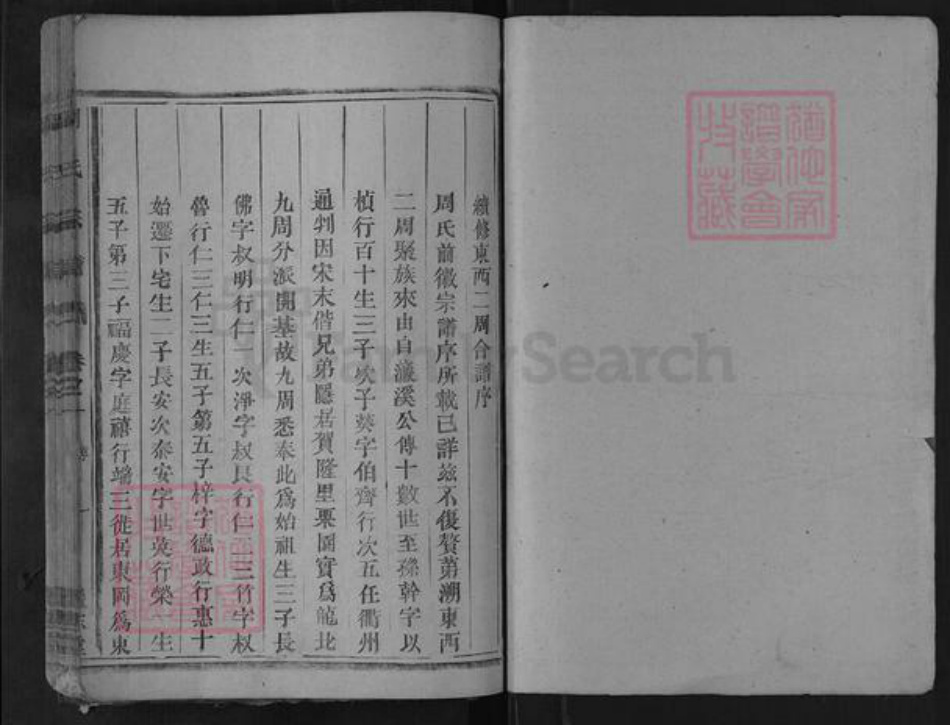 續修東西二周合譜序
周氏前徽宗譜序所載已詳兹不復贅第溯東西
二周聚族來由自濂溪公傳十數世至孫幹字以
楨行百十生三子次子葵字伯齊行次五任衢州
通判因宋末偕兄弟隱居賀隆里栗園實爲龍北
九周分派開基故九周悉奉此爲始祖生三子長
佛字叔明行仁一次淨字叔良行仁二三竹字叔
魯行仁三仁三生五子第五子梓字德政行惠十
始遷下宅生二子長安次泰安字世英行榮一生
五子第三子福慶字庭禧行端三徙居東岡爲東
周氏宗譜 卷之一 序 一
道傳家譜學會特藏
FamilySearch